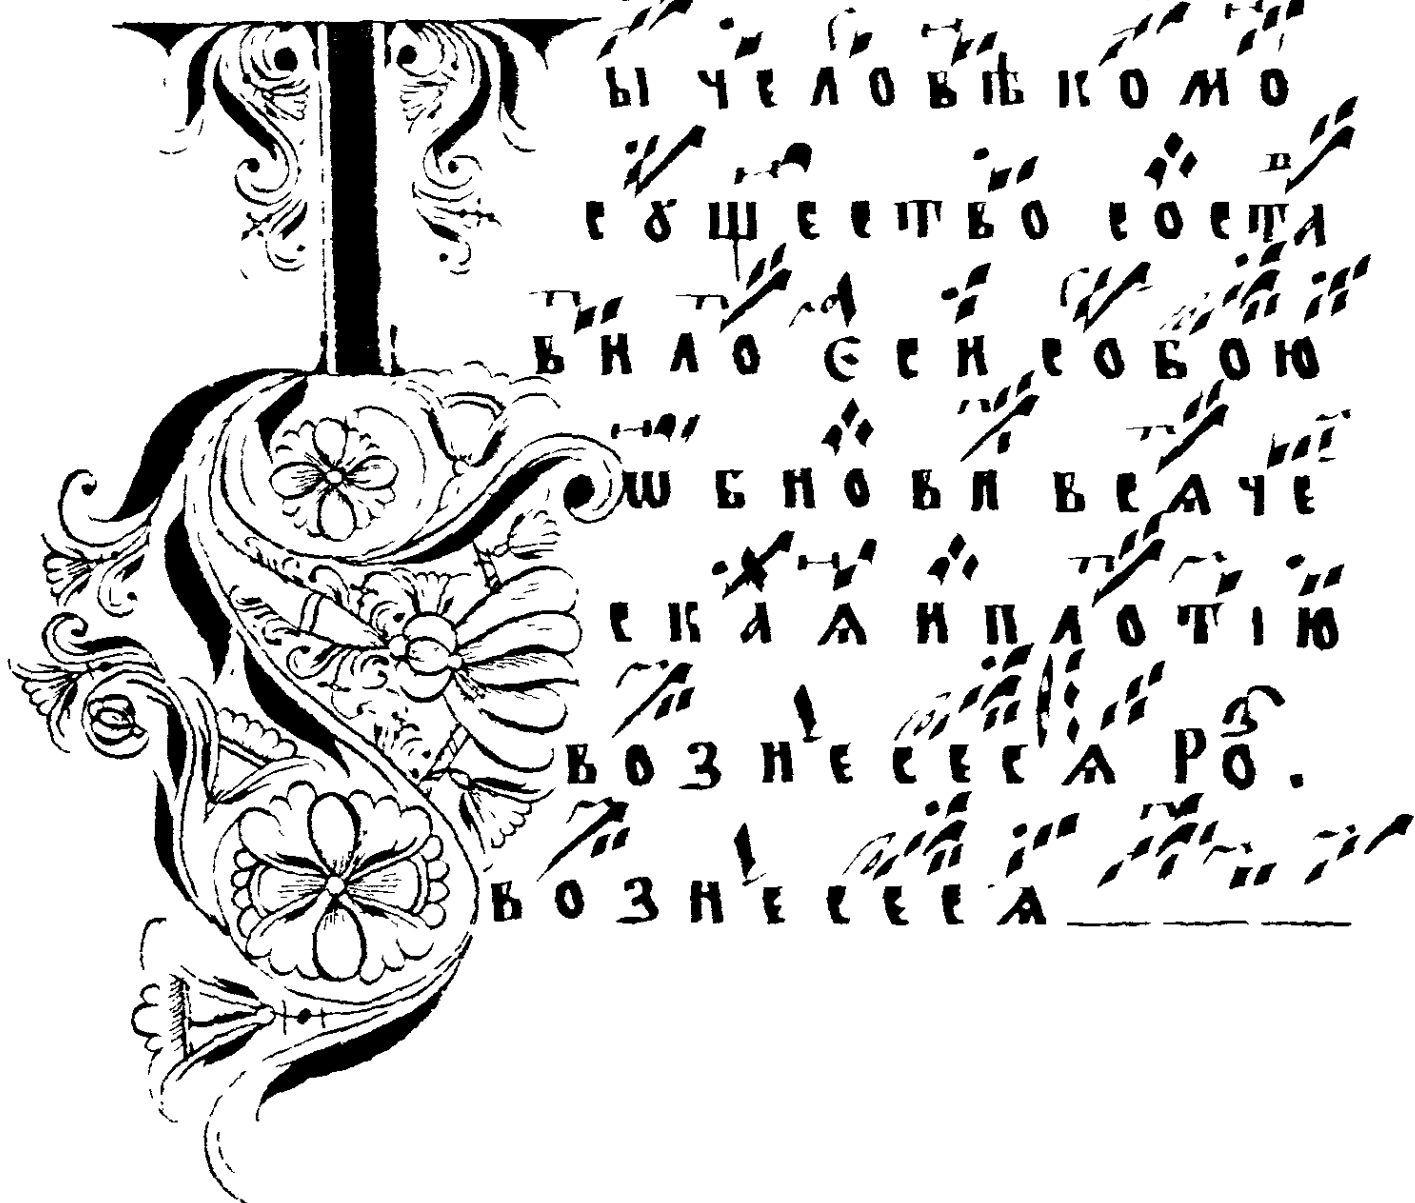 Ты человѣкомо
сꙋщество соста
вило єси собою
ѡбнови всѧче
скаѧ и плотію
вознесесѧ роⷥ.
вознесесѧ